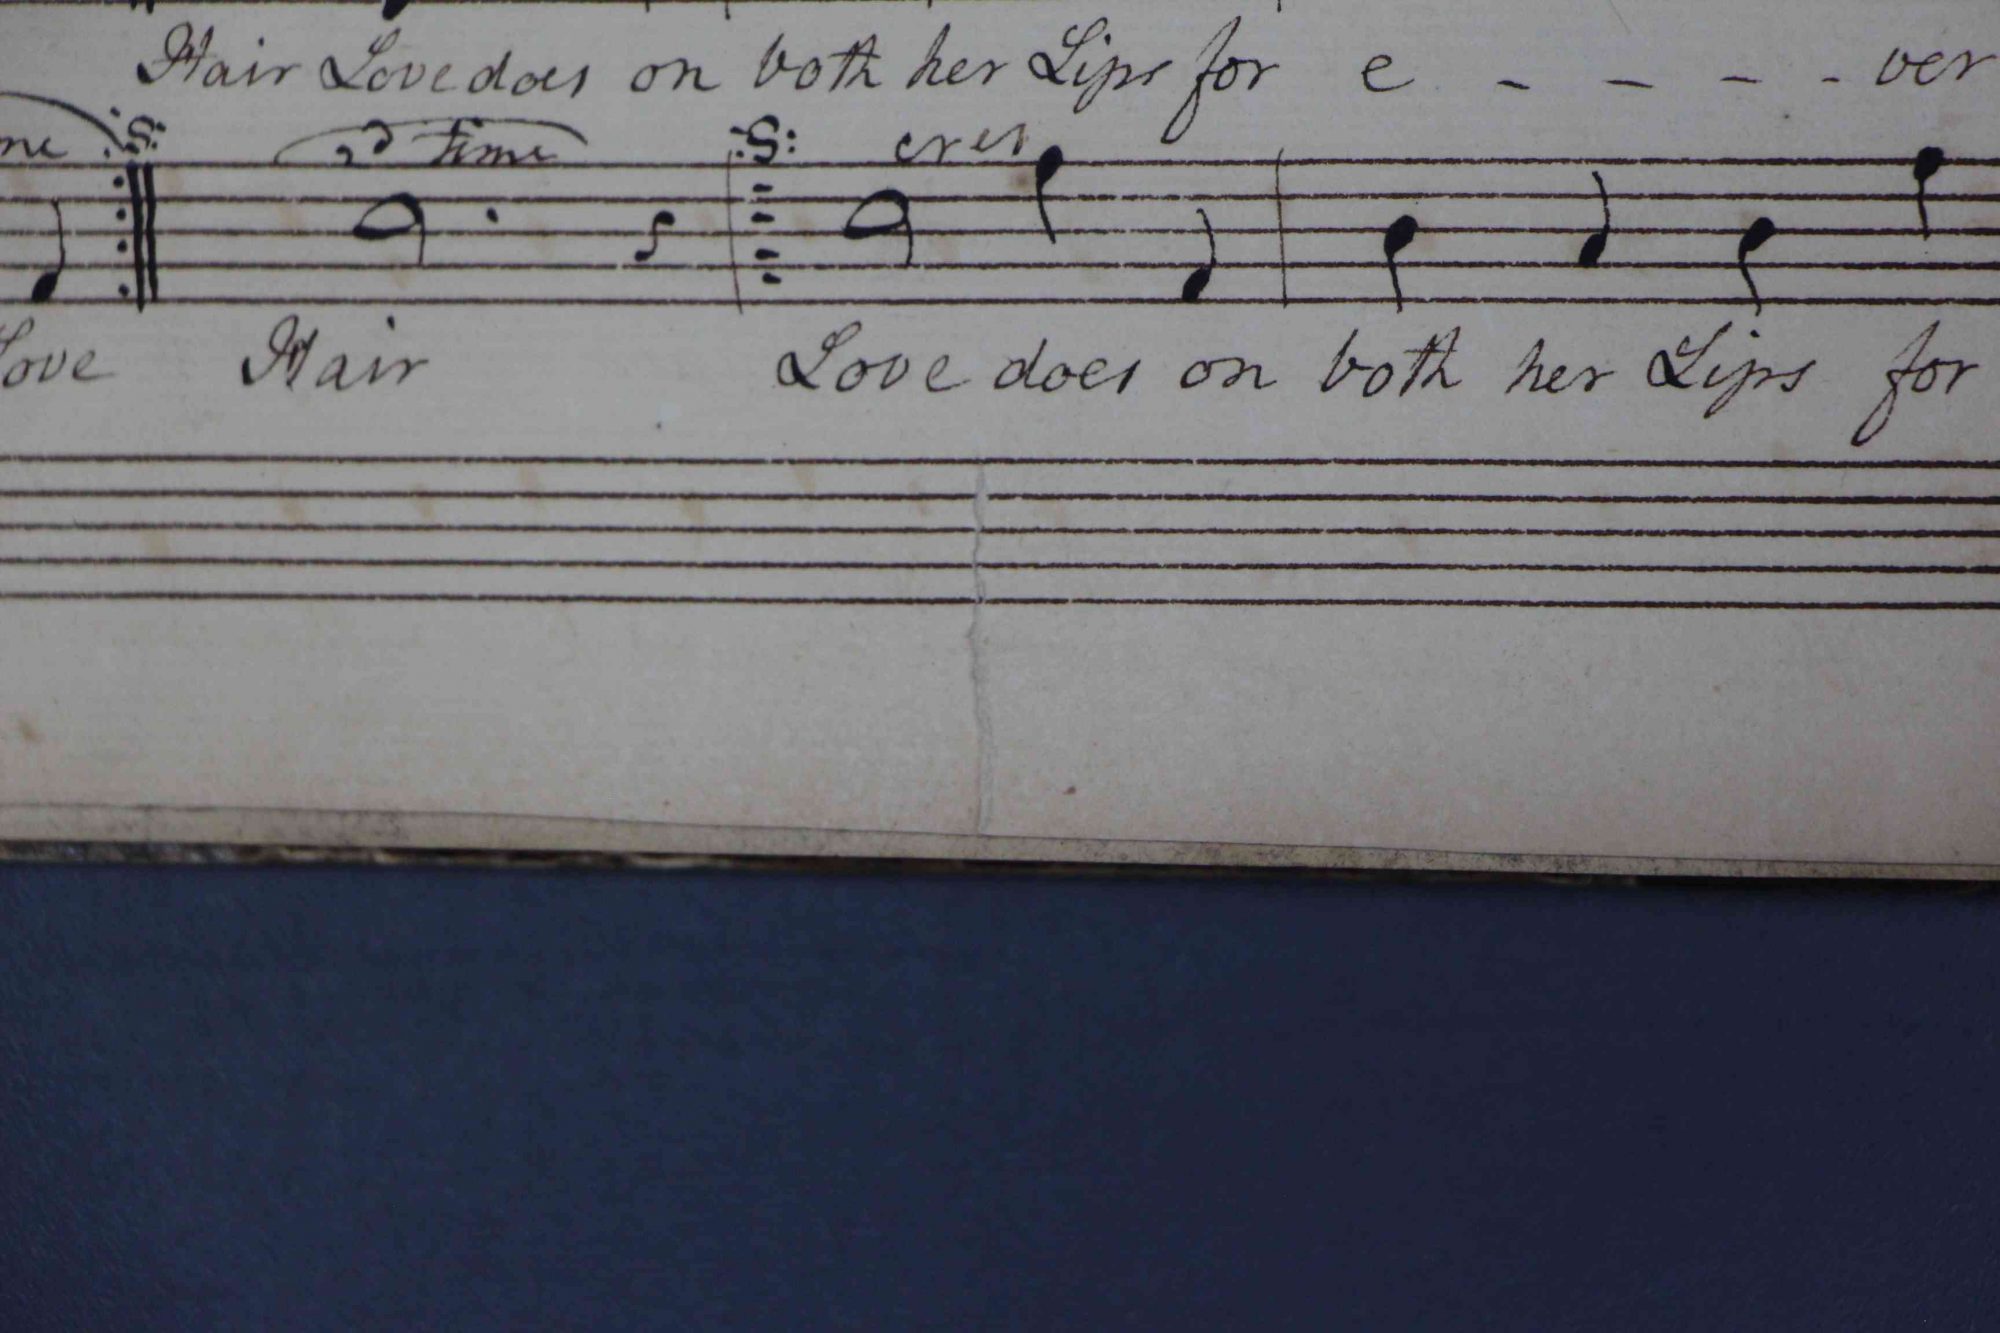 Hair Love does on both her Lips for e - - - - ver
me :S: 2d time :S: cres
Love Hair Love does on both her Lips for